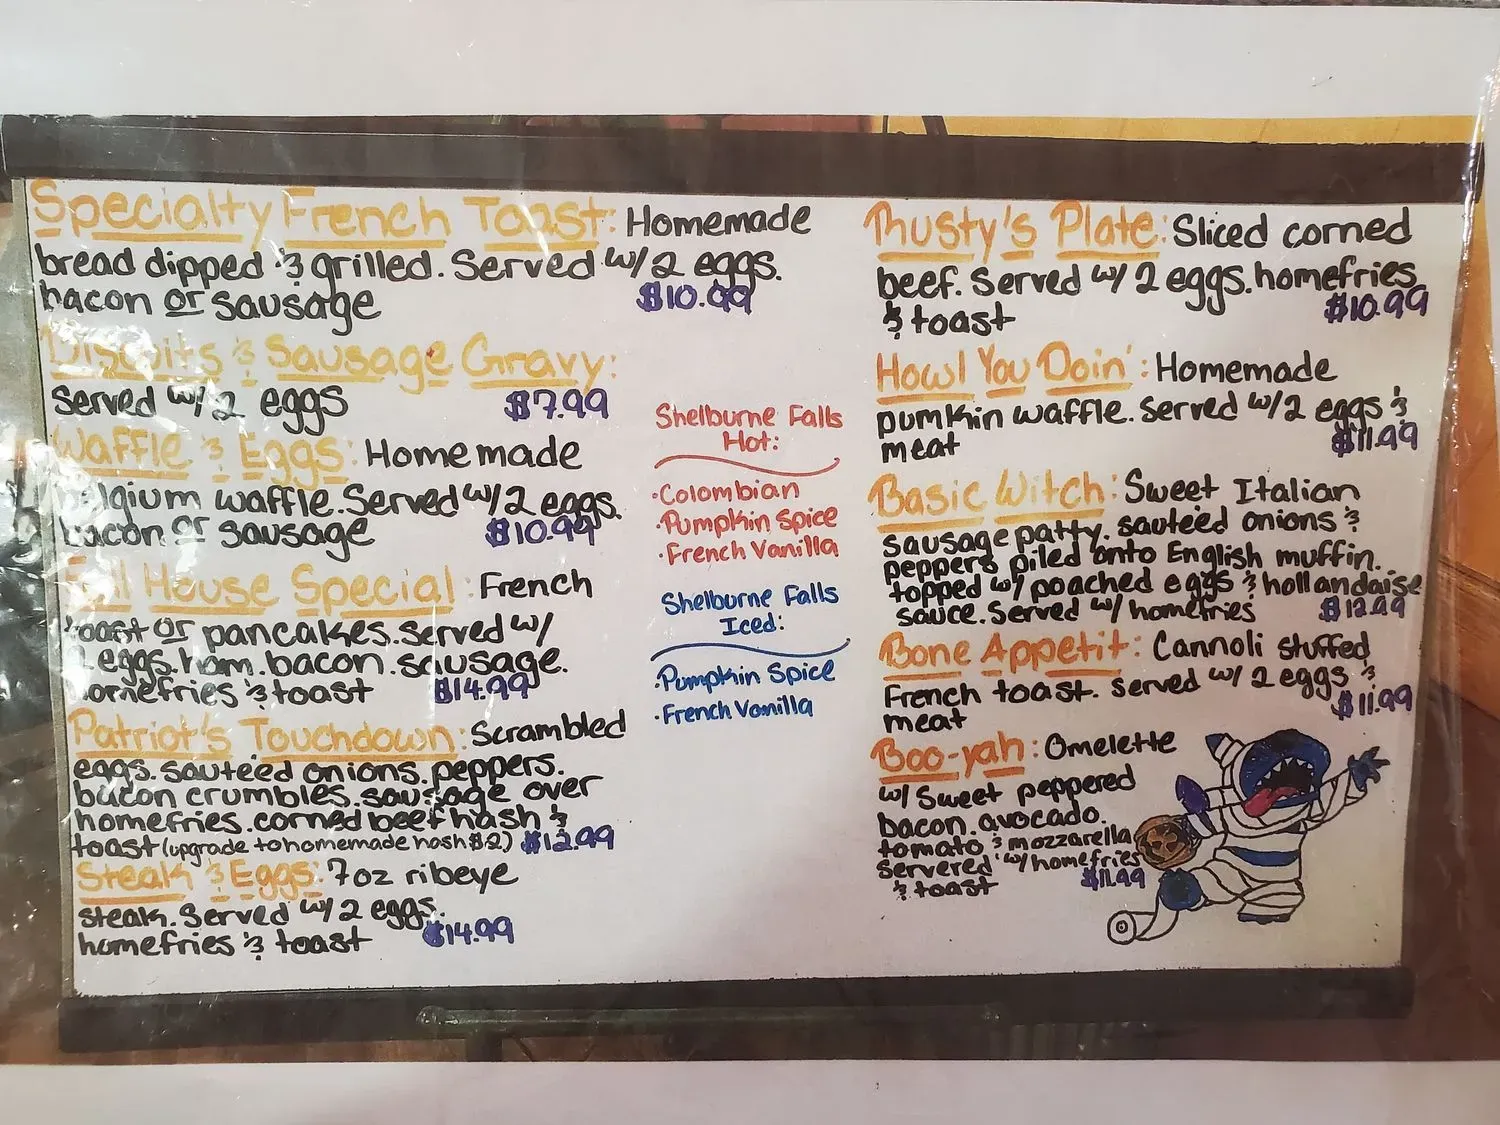 Specialty French Toast: Homemade
bread dipped & grilled. Served w/2 eggs.
bacon or sausage $10.99
Biscuits & Sausage Gravy:
Served w/2 eggs $7.99
Waffle & Eggs: Homemade
belgium waffle. Served w/2 eggs.
bacon or sausage $10.99
Full House Special: French
toast or pancakes. Served w/
2 eggs. ham. bacon. sausage.
homefries & toast $14.99
Patriot's Touchdown: Scrambled
eggs. sautéed onions. peppers.
bacon crumbles. sausage over
homefries. corned beef hash &
toast (upgrade to homemade hash $2) $12.99
Steak & Eggs: 7oz ribeye
steak. Served w/2 eggs.
homefries & toast $14.99
Shelburne Falls
Hot:
·Colombian
·Pumpkin Spice
·French Vanilla
Shelburne Falls
Iced:
·Pumpkin Spice
·French Vanilla
Rusty's Plate: Sliced corned
beef. Served w/2 eggs. homefries
& toast $10.99
Howl You Doin': Homemade
pumkin waffle. Served w/2 eggs &
meat $11.99
Basic Witch: Sweet Italian
sausage patty. sautéed onions &
peppers piled onto English muffin.
topped w/ poached eggs & hollandaise
sauce. Served w/ homefries $12.99
Bone Appetit: Cannoli stuffed
French toast. Served w/ 2 eggs &
meat $11.99
Boo-yah: Omelette
w/ Sweet peppered
bacon. avocado.
tomato & mozzarella
Servered w/ homefries
& toast $11.99